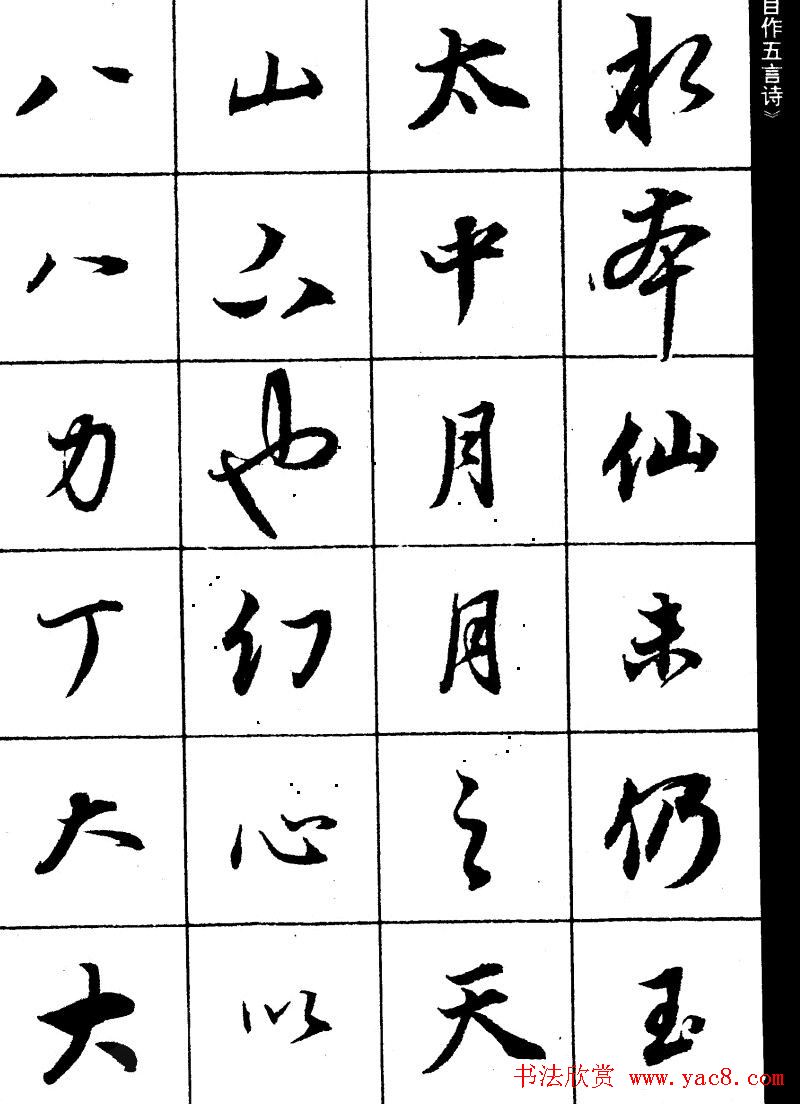 自作五言诗》
本仙未仍玉
太中月月之天
山也幻心以
八八力丁大大
书法欣赏 www.yac8.com